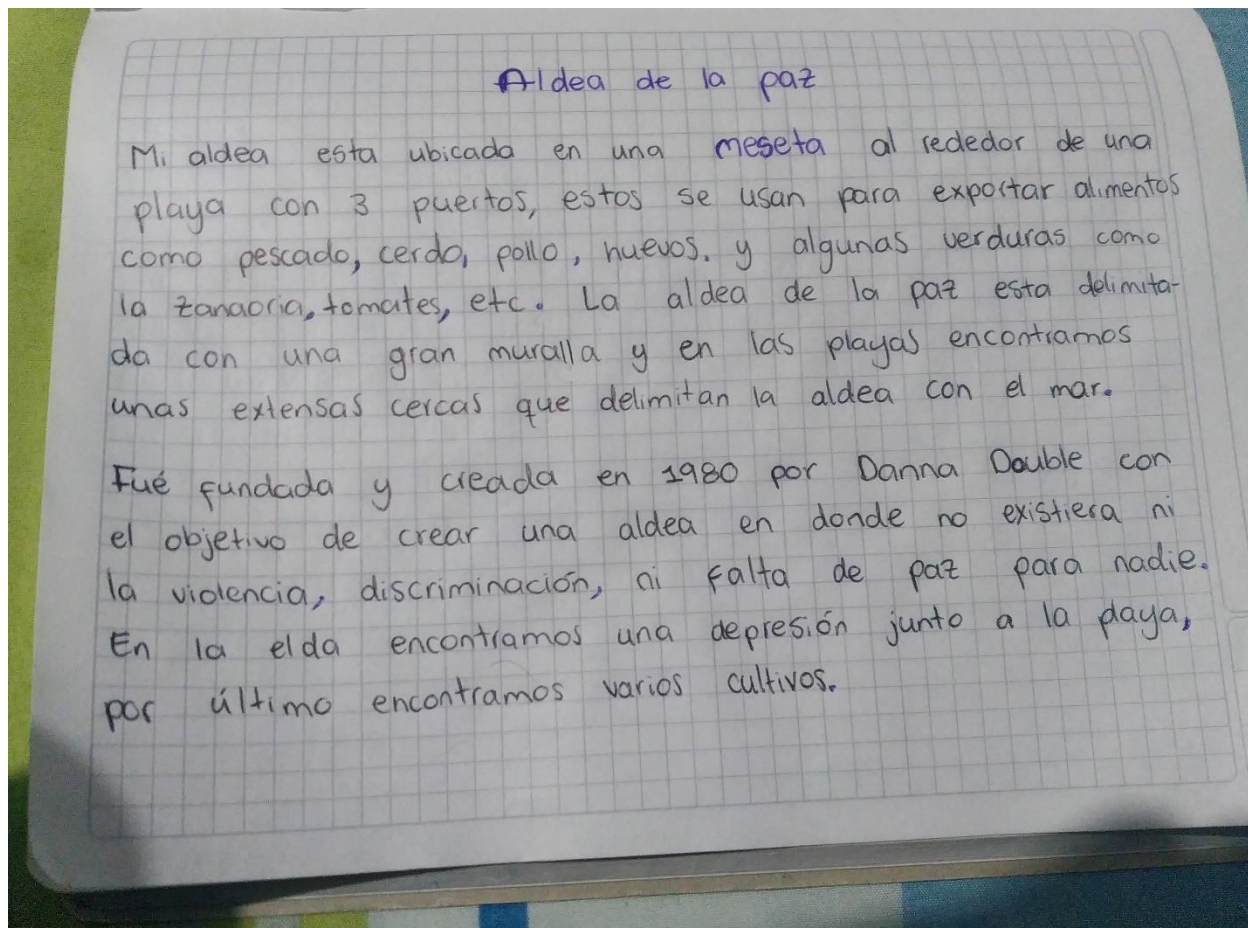 Aldea de la paz
Mi aldea esta ubicada en una meseta al rededor de una
playa con 3 puertos, estos se usan para exportar alimentos
como pescado, cerdo, pollo, huevos, y algunas verduras como
la zanaoria, tomates, etc. La aldea de la paz esta delimita-
da con una gran muralla y en las playas encontramos
unas extensas cercas que delimitan la aldea con el mar.
Fué fundada y creada en 1980 por Danna Double con
el objetivo de crear una aldea en donde no existiera ni
la violencia, discriminación, ni falta de paz para nadie.
En la elda encontramos una depresión junto a la playa,
por último encontramos varios cultivos.